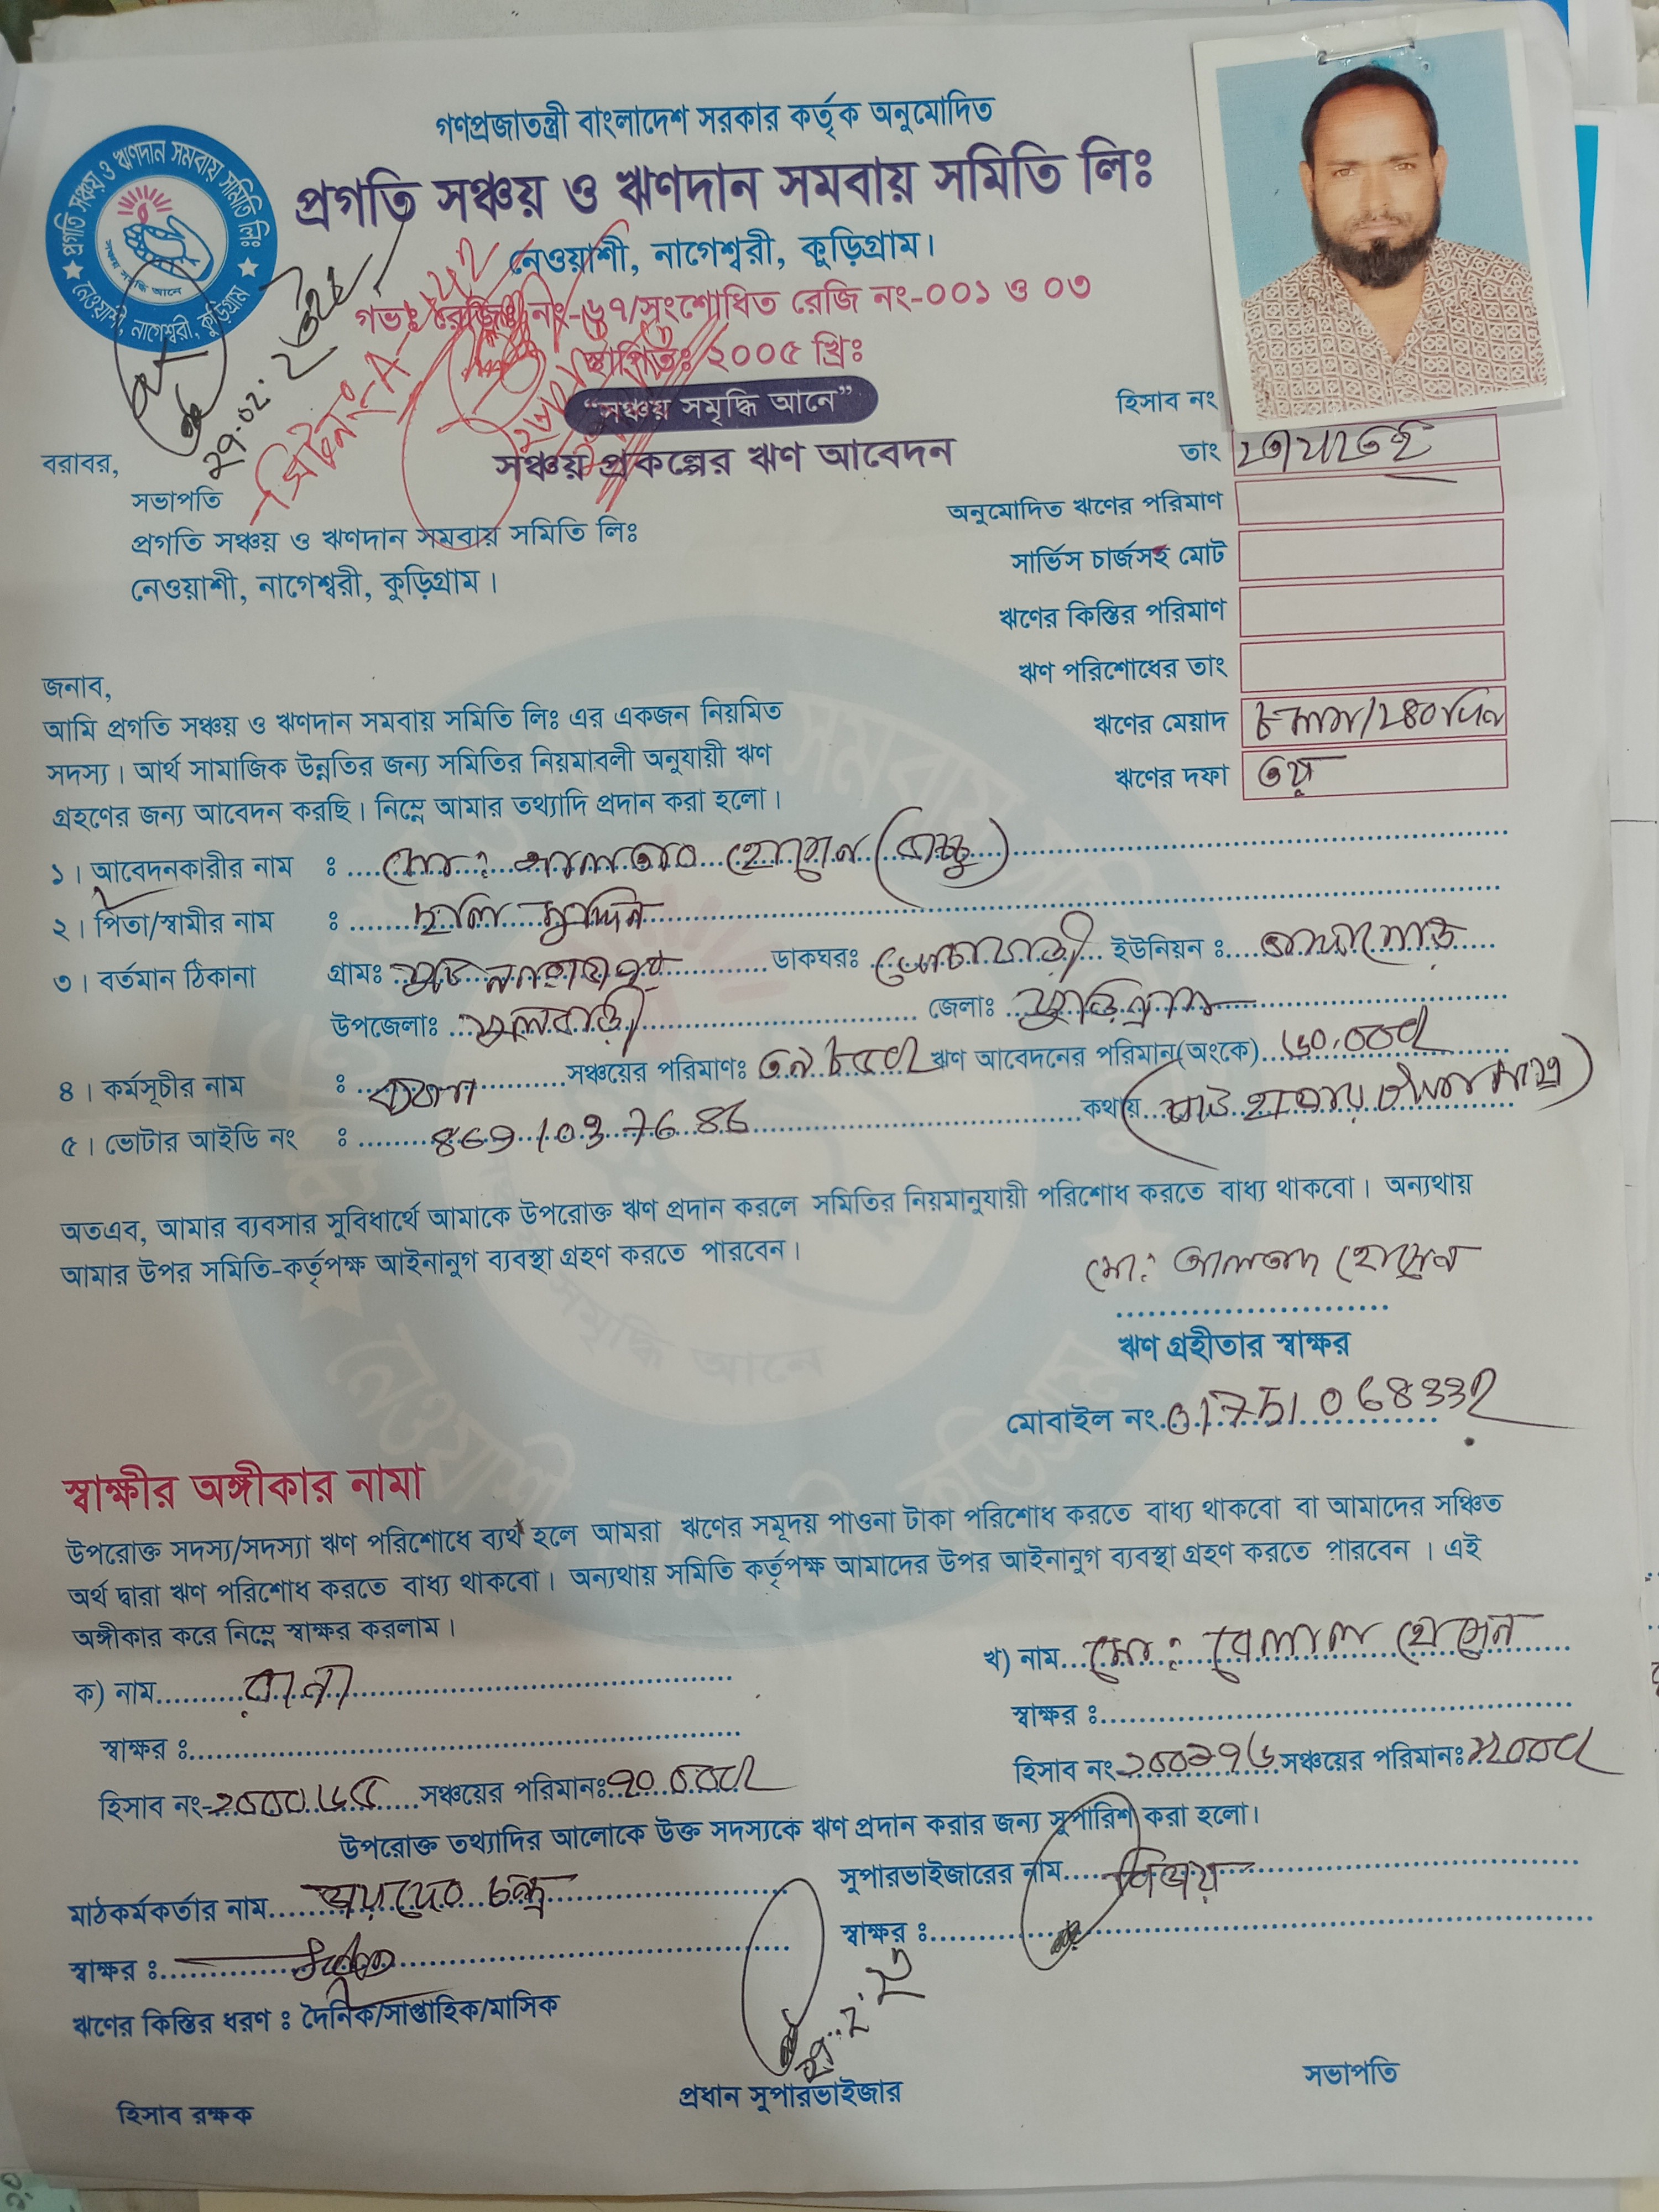 গণপ্রজাতন্ত্রী বাংলাদেশ সরকার কর্তৃক অনুমোদিত
প্রগতি সঞ্চয় ও ঋণদান সমবায় সমিতি লিঃ
নেওয়াশী, নাগেশ্বরী, কুড়িগ্রাম।
গভঃ রেজিঃ নং-৬৭/সংশোধিত রেজি নং-০০১ ও ০৩
স্থাপিতঃ ২০০৫ খ্রিঃ
“সঞ্চয় সমৃদ্ধি আনে”
সঞ্চয় প্রকল্পের ঋণ আবেদন
প্রগতি সঞ্চয় ও ঋণদান সমবায় সমিতি লিঃ
নেওয়াশী, নাগেশ্বরী, কুড়িগ্রাম
সঞ্চয় সমৃদ্ধি আনে
হিসাব নং
তাং
অনুমোদিত ঋণের পরিমাণ
সার্ভিস চার্জসহ মোট
ঋণের কিস্তির পরিমাণ
ঋণ পরিশোধের তাং
ঋণের মেয়াদ ৮ মাস/২৪০ দিন
ঋণের দফা ৩য়
বরাবর,
সভাপতি
প্রগতি সঞ্চয় ও ঋণদান সমবায় সমিতি লিঃ
নেওয়াশী, নাগেশ্বরী, কুড়িগ্রাম।
জনাব,
আমি প্রগতি সঞ্চয় ও ঋণদান সমবায় সমিতি লিঃ এর একজন নিয়মিত
সদস্য। আর্থ সামাজিক উন্নতির জন্য সমিতির নিয়মাবলী অনুযায়ী ঋণ
গ্রহণের জন্য আবেদন করছি। নিম্নে আমার তথ্যাদি প্রদান করা হলো।
১। আবেদনকারীর নাম : মো: আলতাব হোসেন (বাচ্চু)
২। পিতা/স্বামীর নাম :
৩। বর্তমান ঠিকানা গ্রামঃ ডাকঘরঃ ইউনিয়ন :
উপজেলাঃ ফুলবাড়ী জেলাঃ কুড়িগ্রাম
৪। কর্মসূচীর নাম : সঞ্চয়ের পরিমাণঃ ঋণ আবেদনের পরিমান(অংকে) ৬০,০০০/
কথায় (ষাট হাজার টাকা মাত্র)
৫। ভোটার আইডি নং : 869 103 76 86
অতএব, আমার ব্যবসার সুবিধার্থে আমাকে উপরোক্ত ঋণ প্রদান করলে সমিতির নিয়মানুযায়ী পরিশোধ করতে বাধ্য থাকবো। অন্যথায়
আমার উপর সমিতি-কর্তৃপক্ষ আইনানুগ ব্যবস্থা গ্রহণ করতে পারবেন।
মো: আলতাব হোসেন
ঋণ গ্রহীতার স্বাক্ষর
মোবাইল নং 01751068332
স্বাক্ষীর অঙ্গীকার নামা
উপরোক্ত সদস্য/সদস্যা ঋণ পরিশোধে ব্যর্থ হলে আমরা ঋণের সমূদয় পাওনা টাকা পরিশোধ করতে বাধ্য থাকবো বা আমাদের সঞ্চিত
অর্থ দ্বারা ঋণ পরিশোধ করতে বাধ্য থাকবো। অন্যথায় সমিতি কর্তৃপক্ষ আমাদের উপর আইনানুগ ব্যবস্থা গ্রহণ করতে পারবেন । এই
অঙ্গীকার করে নিম্নে স্বাক্ষর করলাম।
ক) নাম খ) নাম মো: বেলাল হোসেন
স্বাক্ষর : স্বাক্ষর :
হিসাব নং সঞ্চয়ের পরিমানঃ হিসাব নং সঞ্চয়ের পরিমানঃ
উপরোক্ত তথ্যাদির আলোকে উক্ত সদস্যকে ঋণ প্রদান করার জন্য সুপারিশ করা হলো।
মাঠকর্মকর্তার নাম জয়দেব চন্দ্র সুপারভাইজারের নাম বিজয়
স্বাক্ষর : স্বাক্ষর :
ঋণের কিস্তির ধরণ : দৈনিক/সাপ্তাহিক/মাসিক
হিসাব রক্ষক প্রধান সুপারভাইজার সভাপতি